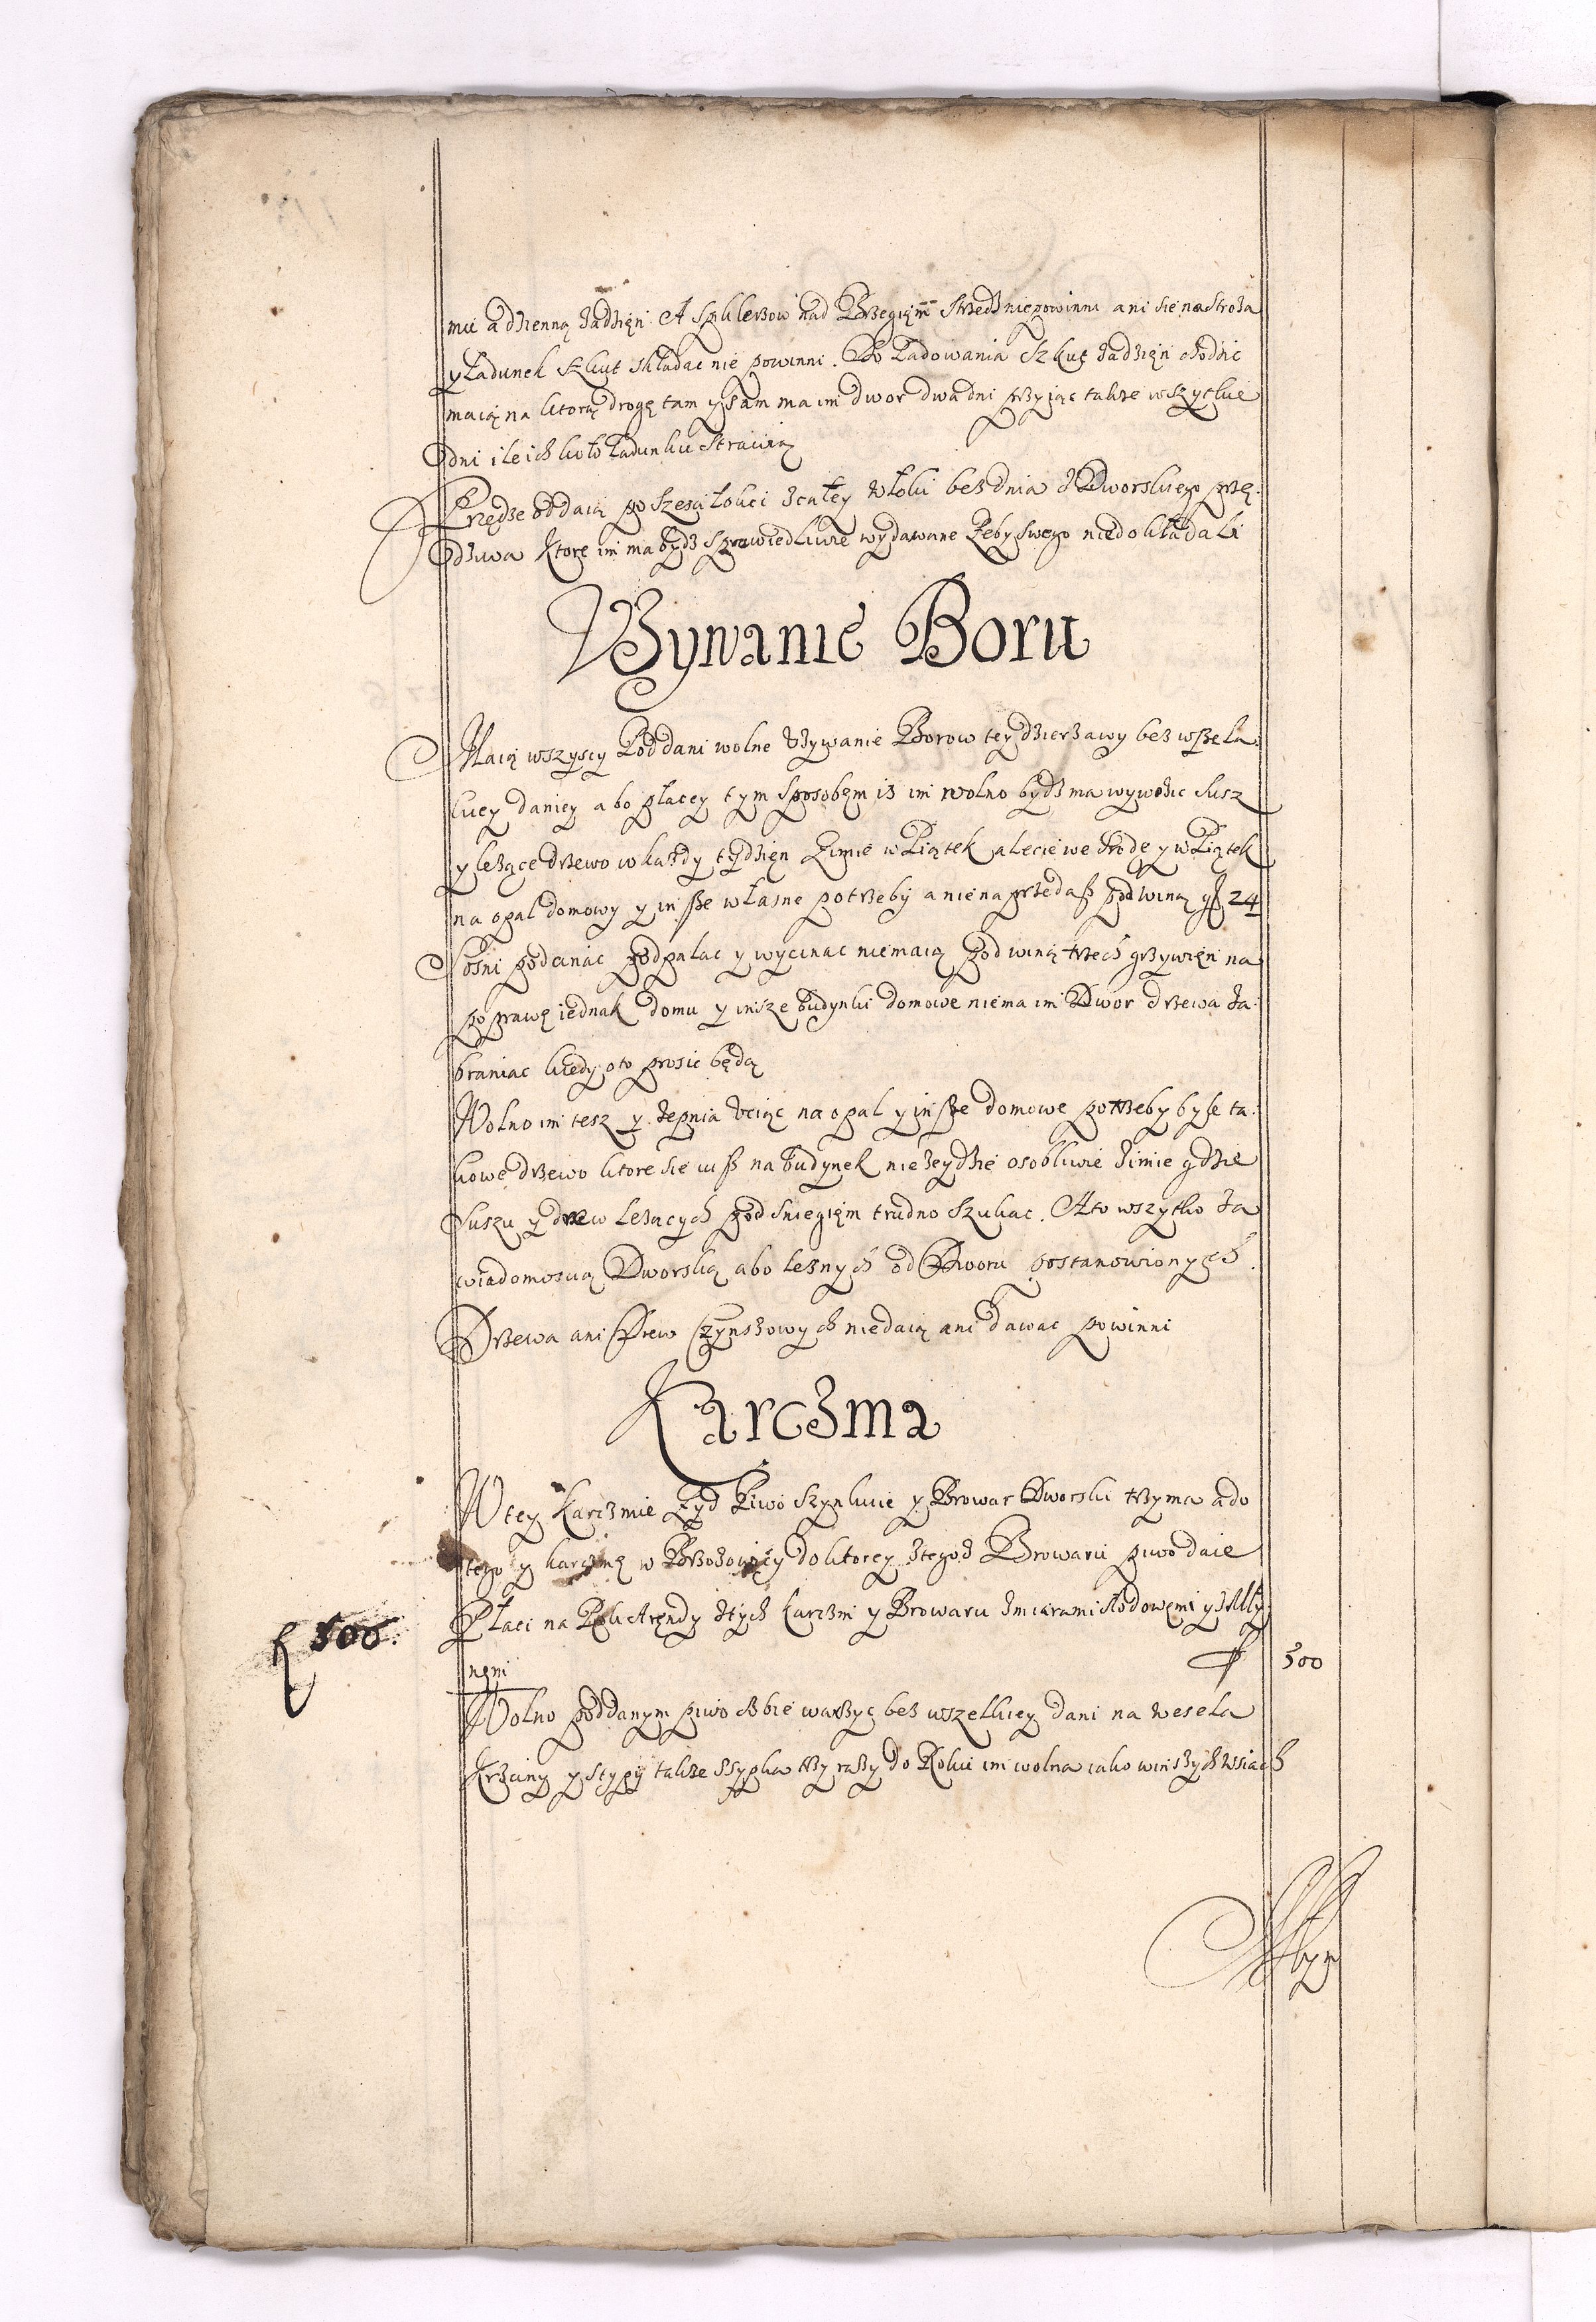 mu a dzienną zadzięn. A Spilerzow nad Brzegięm Strzedz niepowinni ani sie na Stroza
y Ładunek Szkut składac nie powinni. Do Ładowania Szkut zadzięn chodzic
maią na ktorą drogę tam y sam ma im dwor dwa dni przyiąc takze wszytkie
dni ile ich koło Ładunku Straciią
Przędze oddaią po Szesci łokci z całey włoki bez dnia z Dworskiego przę:
dziwa ktore im ma bydz sprawiedliwie wydawane Zeby swego niedokładali
Vzywanie Boru
Maią wszyscy Poddani wolne Vzywanie Borow tey dzierzawy bez wszela:
kiey daniey abo płacey tym Sposobęm iz im wolno bydz ma wywozic Susz
y lezące drzewo w kazdy tydzięn Zimie w Piątek a Lecie we Srodę y w Piątek
na opal domowy y insze własne potrzeby a nie na przedasz pod winą gr 24
Sosni podcinac podpalac y wycinac niemaią pod winą trzech grzywięn na
poprawę iednak domu y insze budynki domowe niema im Dwor drzewa za:
braniac kiedy oto prosic będą
Wolno im tesz y Zepnia vciąc na opal y insze domowe potrzeby bysze ta:
kowe drzewo ktore sie iusz na budynek nie zeydzie osobliwie Zimie gdzie
Suszu y drzew Lezacych pod sniegięm trudno Szukac. A to wszytko za
wiadomoscią Dworską abo Lesnych od Dworu postanowionych.
Drzewa ani Drew Czynszowych niedaią ani dawac powinni
Karczma
W tey Karczmie Zyd Piwo Szynkuie y Browar Dworski trzyma a do
tego y karczmę w Brzozowiey do ktorey z tegoz Browaru piwo daie
Płaci na Rok Arędy z tych Karczm y Browaru z miarami słodowęmi y Młÿ:
nęmi f 500
f 500.
Wolno poddanym piwo sobie warzyc bez wszelkiey dani na wesela
Krzciny y Stypy takze Ssypka trzy razy do Roku im wolna iako w inszych wsiach
Młyn